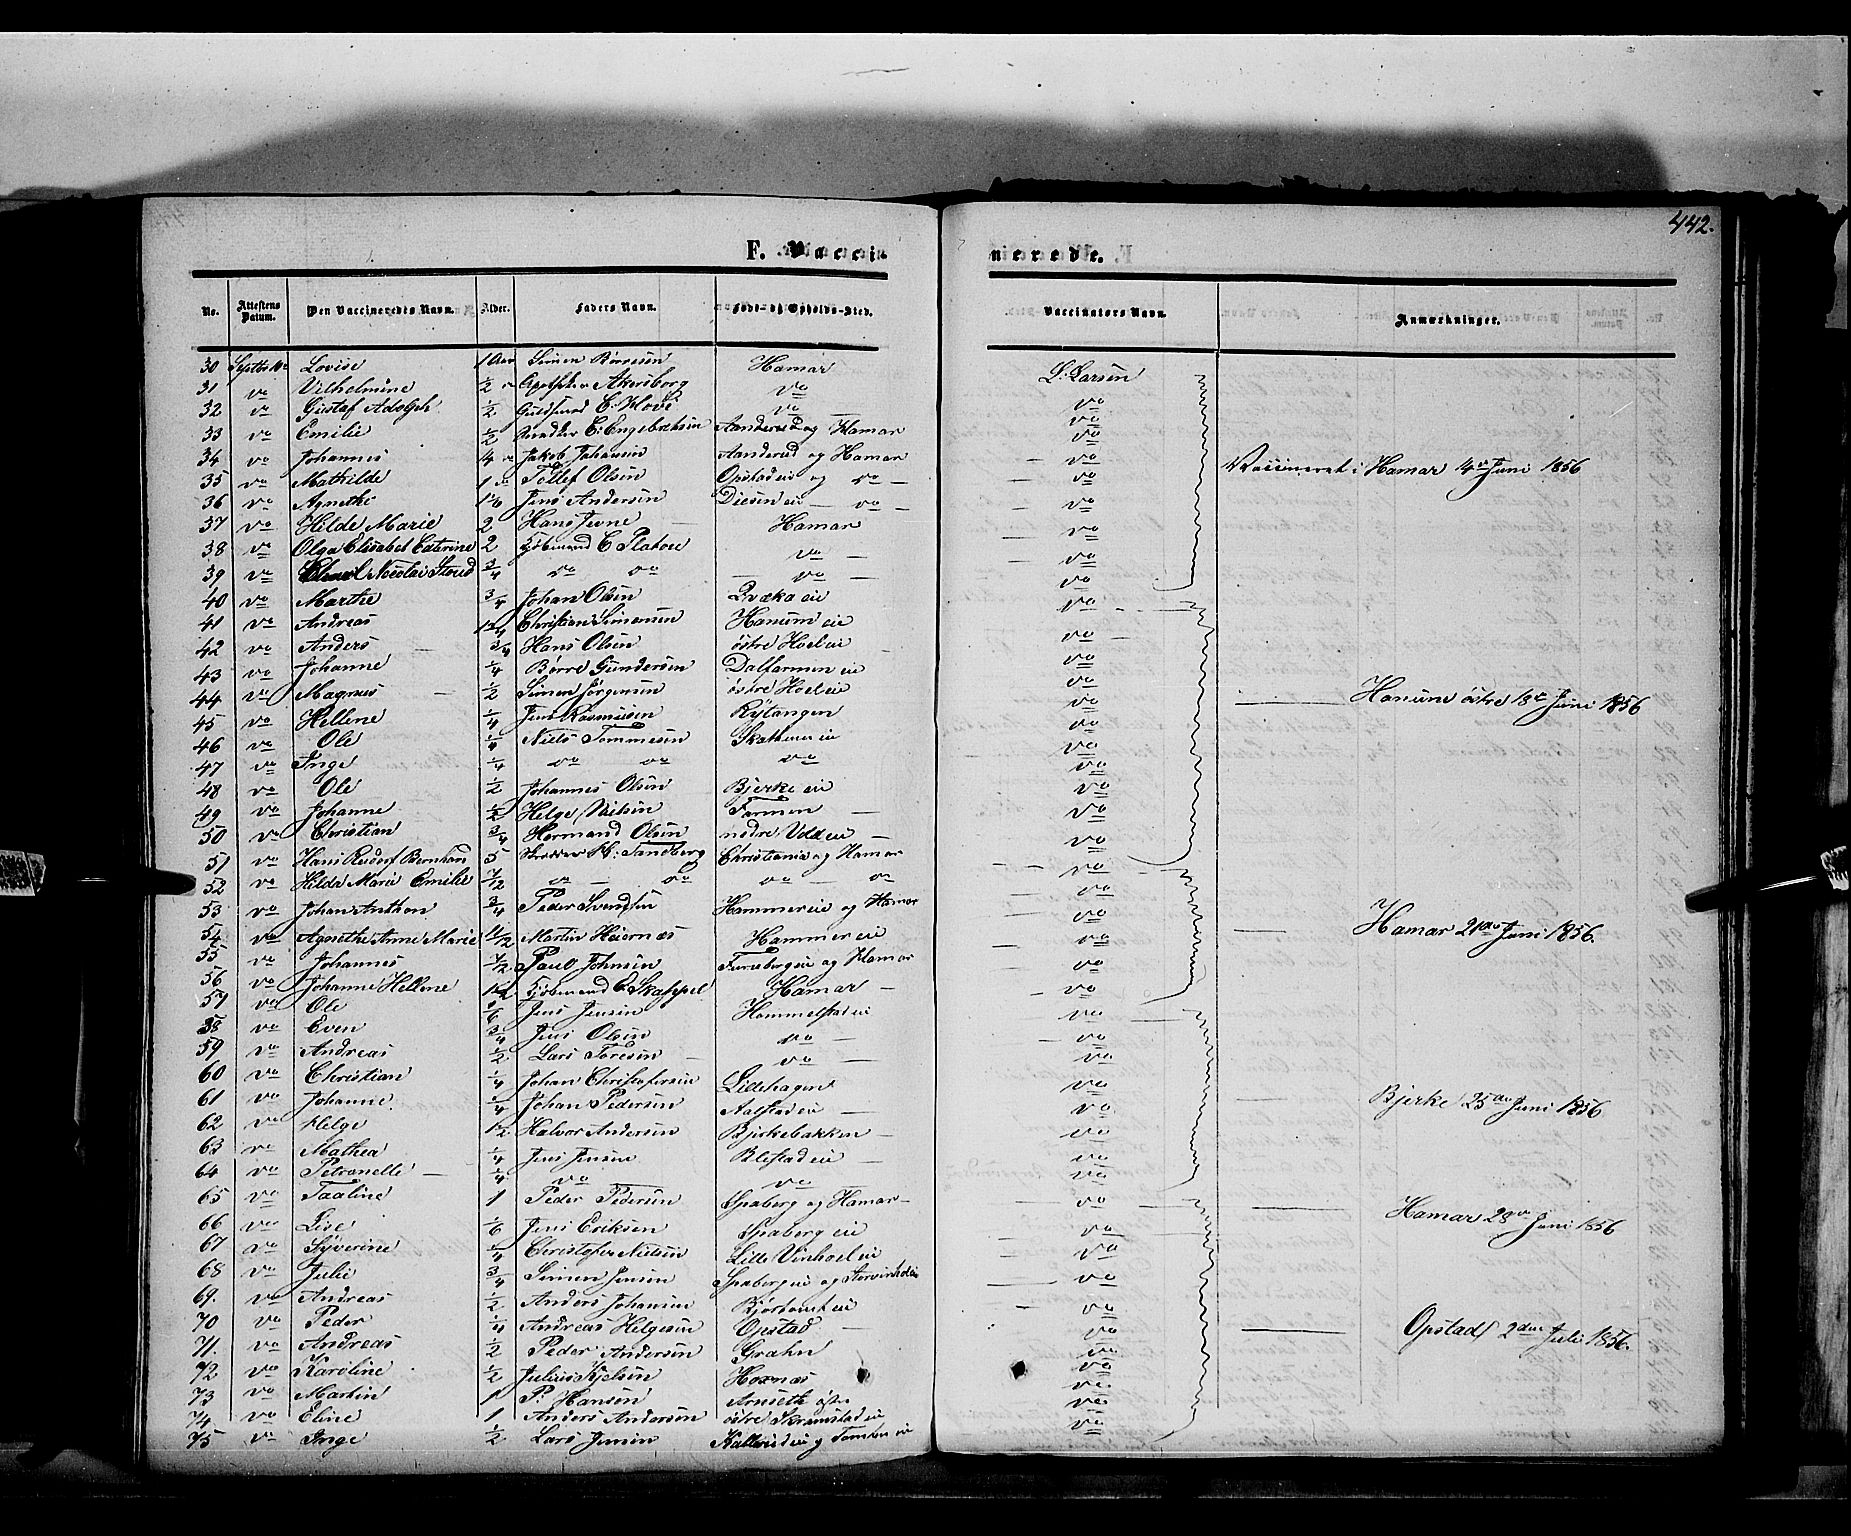 442.
F. Vaccinerede.
No. Attestens Datum. Den Vaccineredes Navn. Alder. Faders Navn. Føde- og Opholds-Sted. Vaccinators Navn. Anmærkninger.
30 Septbr Lovise 1 Aar Simen Børresen Hamar L: Larsen
31 do Vilhelmine 1/2 Apotheker Akersborg do do
32 do Gustaf Adolph 1/2 do do
33 do Emilie 1/2 E: Engebretsen Aanderud og Hamar do
34 do Johannes Jakob Johansen Aanderud og Hamar do Vaccineret i Hamar 14de Juni 1856
35 do Mathilde 1 Tollef Olsen Opstadeie og do do
36 do Agnethe Jens Andersen Diesen eie do do
37 do Hilda Marie 2 Hans Jevne Hamar do
38 do Olga Elisabet Caterine 2 Kjøbmand C Platou do do
39 do Nicolai Stoud 3/4 do do do do
40 do Marthe 3/4 Johan Olsen Qvækaeie do
41 do Andreas Christian Simensen Hanum eie do
42 do Anders 3/4 Hans Olsen østre Hoel eie do
43 do Johanne 1/4 Børre Gundersen Dalfarmen eie do
44 do Magnus 1/2 Simen Jørgensen østre Hoel eie do Hanum østre 18de Juni 1856
45 do Hellene 1/4 Jens Rasmusen Rytangen do
46 do Ole 1/4 Niels Tommesen eie do
47 do Inge 1/4 do do do do
48 do Ole 1/2 Johannes Olsen Bjerke eie do
49 do Johanne 1/2 Helge Nielsen Farmen do
50 do Christian 3/4 Hermand Olsen nedre eie do
51 do Hans Rudolf Bernhard 5 Sandberg Christiania og Hamar do
52 do Hilda Marie Emilie 7/12 do do do do do
53 do Johan Anthon 3/4 Peder Svendsen Hammer eie og Hamar do Hamar 21de Juni 1856.
54 do Agnethe Anne Marie Martin Heiernæs Hammer eie do
55 do Johannes 7/12 Paul Johnsen Furubergeie og Hamar do
56 do Johanne Hellene Kjøbmand E Skappel Hamar do
57 do Ole Jens Jensen Hommelstad eie do
58 do Even 3/4 Jens Olsen do do
59 do Andreas 1/2 Lars Toresen do do
60 do Christian 1/4 Johan Christofersen Lillehagen do
61 do Johanne 1/4 Johan Pedersen Aalstad eie do Bjerke 25de Juni 1856
62 do Helge Halvor Andersen Bjerkebakken do
63 do Mathea 1/4 Jens Jensen Blestad eie do
64 do Petronelle 1/4 do do do
65 do Taaline 1 Peder Pedersen Spaberg og Hamar do
66 do Lise 1/6 Jens Eriksen Spaberg eie do Hamar 28de Juni 1856
67 do Syverine 1/4 Christofer Nielsen Lille Vinhoel eie do
68 do Julie 3/4 Simen Jensen Spaberg eie og do
69. do Andreas 1/2 Anders Johansen eie do
70 do Peder 1/4 Andreas Helgesen Opstad do Opstad 2den Juli 1856.
71. do Andreas 1/2 Peder Andersen Grahn do
72 do Karoline 1/2 Julius Kjelsen Hoxnæs do
73 do Martin 1 P: Hansen Arnseth do
74 do Eline 1 Anders Andersen østre Skramstad eie do
75 do Inge 1/2 Lars Jensen og eie do